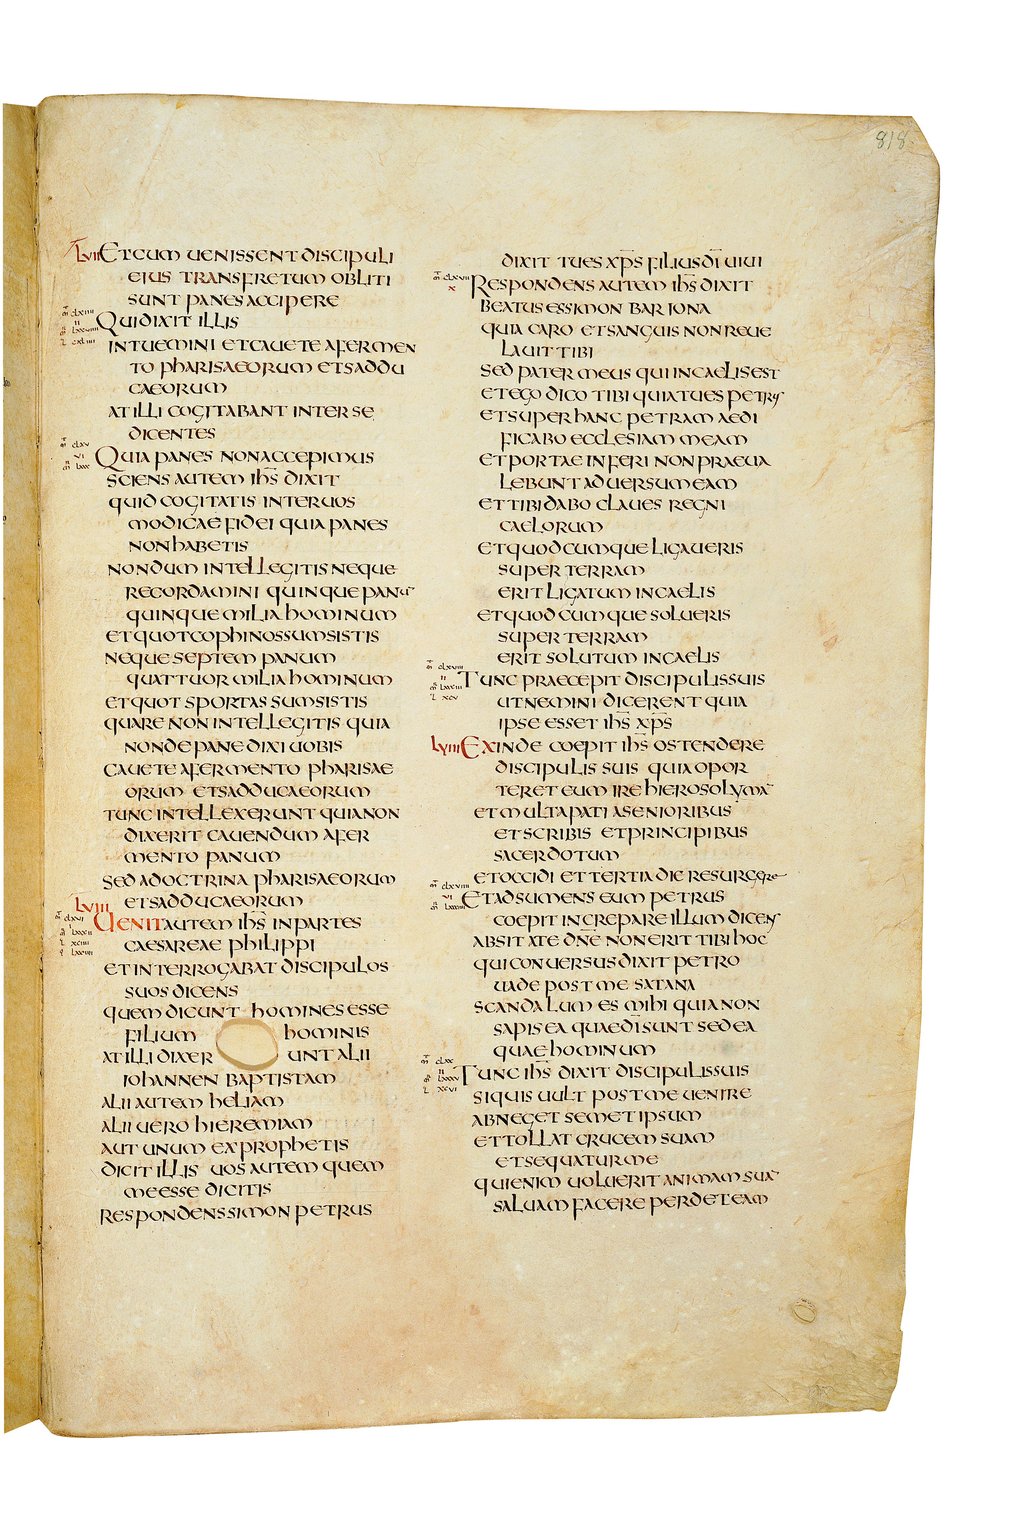 818
LVII ET CUM UENISSENT DISCIPULI
EIUS TRANSFRETUM OBLITI
SUNT PANES ACCIPERE
QUI DIXIT ILLIS
INTUEMINI ET CAUETE A FERMEN
TO PHARISAEORUM ET SADDU
CAEORUM
AT ILLI COGITABANT INTER SE
DICENTES
QUIA PANES NON ACCEPIMUS
SCIENS AUTEM IHS̄ DIXIT
QUID COGITATIS INTER UOS
MODICAE FIDEI QUIA PANES
NON HABETIS
NONDUM INTELLEGITIS NEQUE
RECORDAMINI QUINQUE PANU̅
QUINQUE MILIA HOMINUM
ET QUOT COPHINOS SUMSISTIS
NEQUE SEPTEM PANUM
QUATTUOR MILIA HOMINUM
ET QUOT SPORTAS SUMSISTIS
QUARE NON INTELLEGITIS QUIA
NON DE PANE DIXI UOBIS
CAUETE A FERMENTO PHARISAE
ORUM ET SADDUCAEORUM
TUNC INTELLEXERUNT QUIA NON
DIXERIT CAUENDUM A FER
MENTO PANUM
SED A DOCTRINA PHARISAEORUM
ET SADDUCAEORUM
LVIII UENIT AUTEM IHS̄ IN PARTES
CAESAREAE PHILIPPI
ET INTERROGABAT DISCIPULOS
SUOS DICENS
QUEM DICUNT HOMINES ESSE
FILIUM HOMINIS
AT ILLI DIXERUNT ALII
IOHANNEN BAPTISTAM
ALII AUTEM HELIAM
ALII UERO HIEREMIAM
AUT UNUM EX PROPHETIS
DICIT ILLIS UOS AUTEM QUEM
ME ESSE DICITIS
RESPONDENS SIMON PETRUS
DIXIT TU ES XP̄S FILIUS DĪ UIUI
RESPONDENS AUTEM IHS̄ DIXIT
BEATUS ES SIMON BAR IONA
QUIA CARO ET SANGUIS NON REUE
LAUIT TIBI
SED PATER MEUS QUI IN CAELIS EST
ET EGO DICO TIBI QUIA TU ES PETRUS
ET SUPER HANC PETRAM AEDI
FICABO ECCLESIAM MEAM
ET PORTAE INFERI NON PRAEUA
LEBUNT ADUERSUM EAM
ET TIBI DABO CLAUES REGNI
CAELORUM
ET QUODCUMQUE LIGAUERIS
SUPER TERRAM
ERIT LIGATUM IN CAELIS
ET QUODCUMQUE SOLUERIS
SUPER TERRAM
ERIT SOLUTUM IN CAELIS
TUNC PRAECEPIT DISCIPULIS SUIS
UT NEMINI DICERENT QUIA
IPSE ESSET IHS̄ XP̄S
LVIIII EXINDE COEPIT IHS̄ OSTENDERE
DISCIPULIS SUIS QUIA OPOR
TERET EUM IRE HIEROSOLYMA̅
ET MULTA PATI A SENIORIBUS
ET SCRIBIS ET PRINCIPIBUS
SACERDOTUM
ET OCCIDI ET TERTIA DIE RESURGERE
ET ADSUMENS EUM PETRUS
COEPIT INCREPARE ILLUM DICENS
ABSIT A TE DN̄E NON ERIT TIBI HOC
QUI CONUERSUS DIXIT PETRO
UADE POST ME SATANA
SCANDALUM ES MIHI QUIA NON
SAPIS EA QUAE DĪ SUNT SED EA
QUAE HOMINUM
TUNC IHS̄ DIXIT DISCIPULIS SUIS
SI QUIS UULT POST ME UENIRE
ABNEGET SEMET IPSUM
ET TOLLAT CRUCEM SUAM
ET SEQUATUR ME
QUI ENIM UOLUERIT ANIMAM SUA̅
SALUAM FACERE PERDET EAM